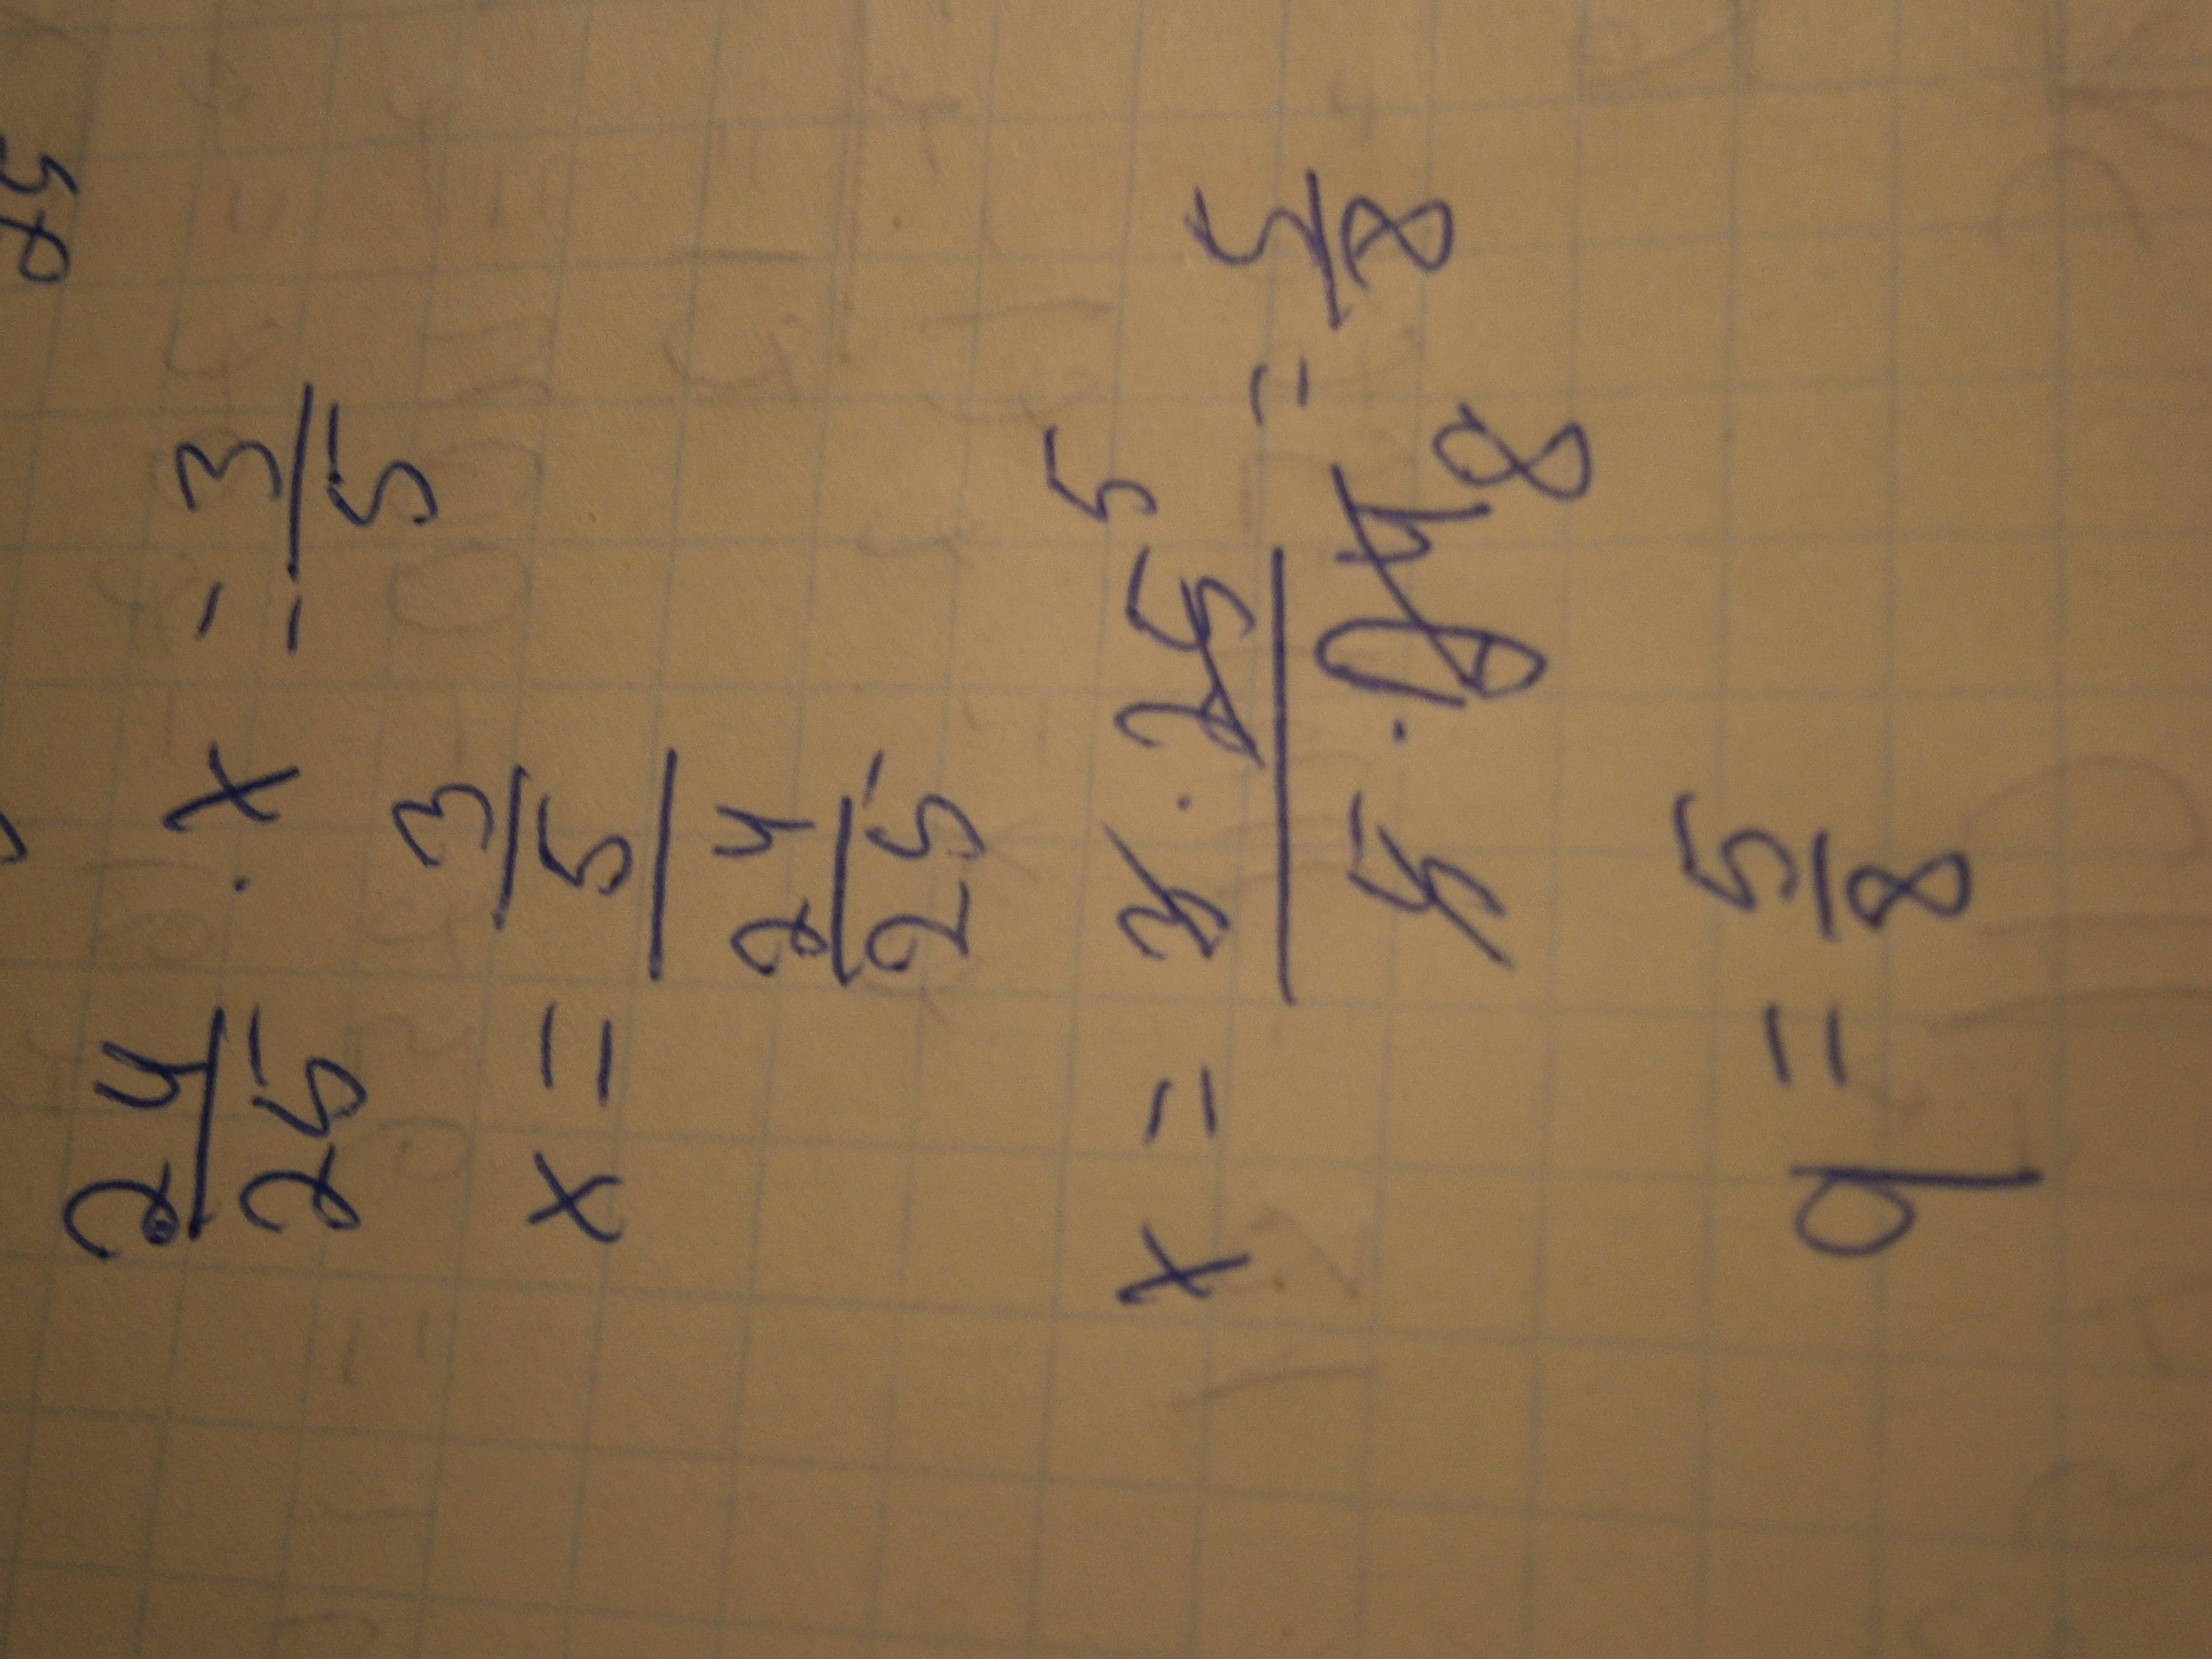 5p
24/25 · x = 3/5
x = (3/5)/(24/25)
x = (3 · 25 5)/(5 · 24 8) = 5/8
q = 5/8